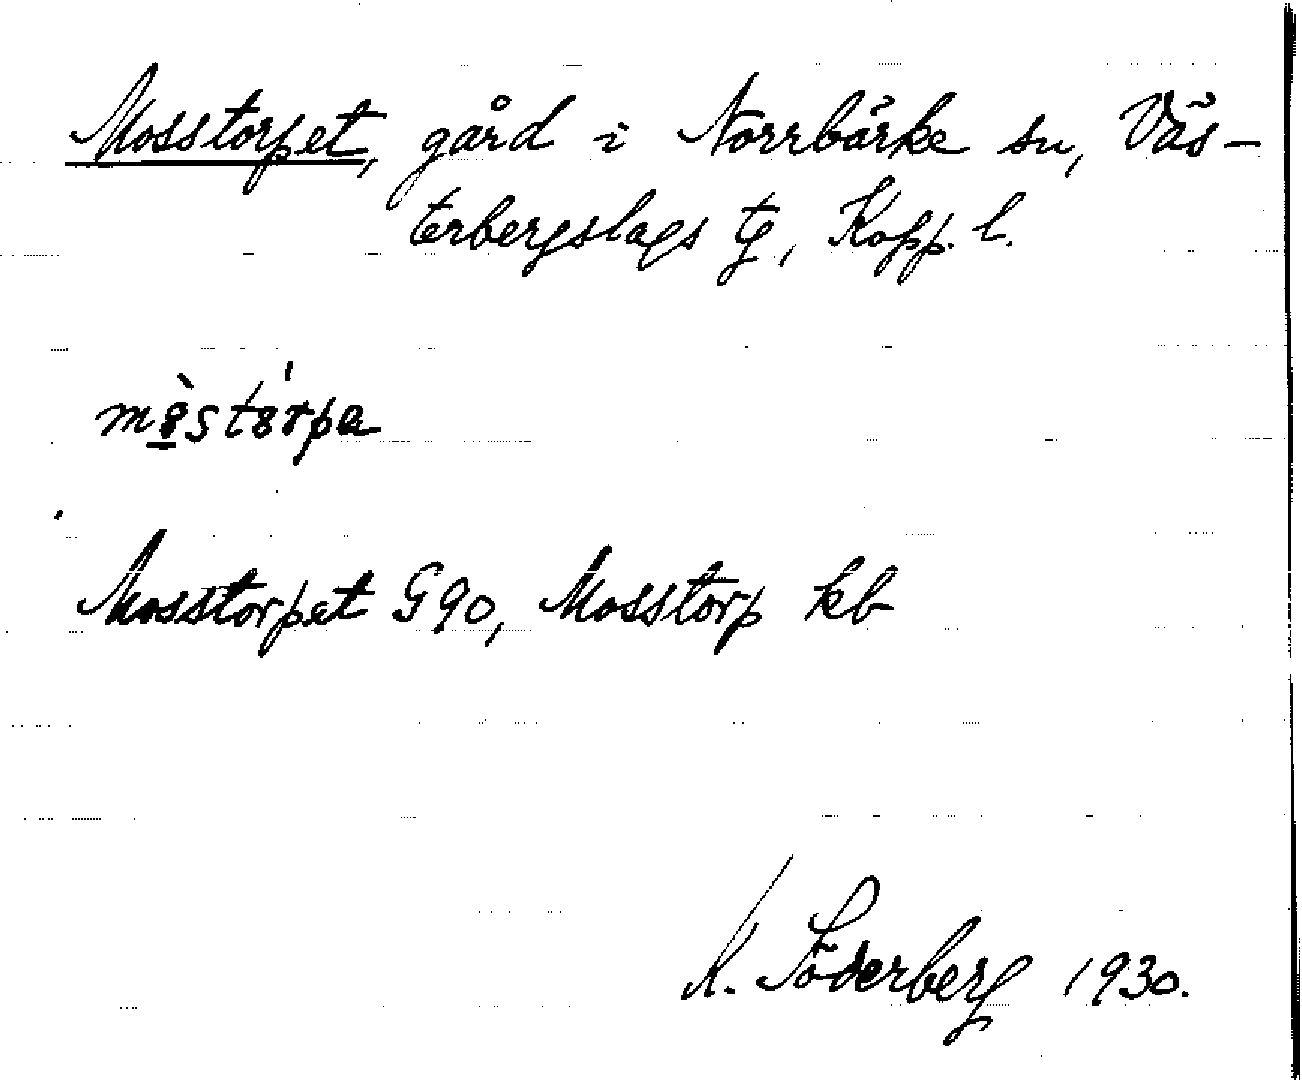 Mosstorpet, gård i Norrbärke sn, Väs-
terbergslags tg, Kopp. l.
Mosstorpet G90, Mosstorp kb
K. Söderberg 1930.